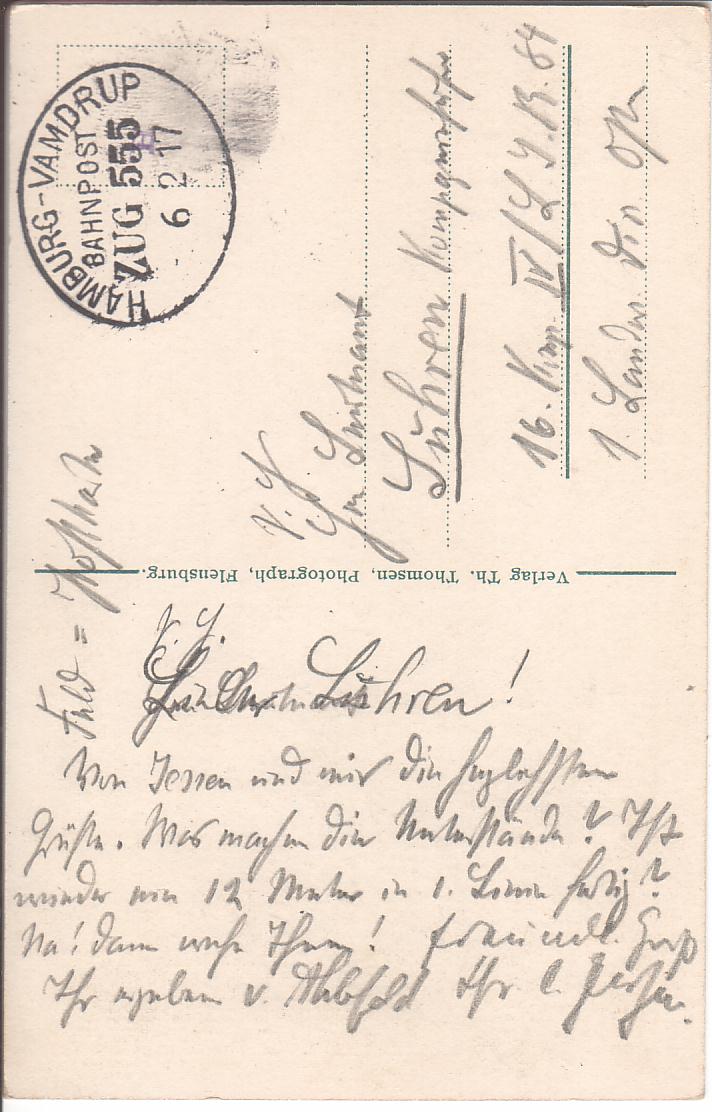 HAMBURG-VAMDRUP
BAHNPOST
ZUG 555
6 2 17
Feld = Postkarte
Leutnant
Lühren Kompagnieführer
16. Komp. IV/L.I.R. 84
1. Landw. Div. Op
Verlag Th. Thomsen, Photograph, Flensburg.
Lühren!
Von Jessen und mir die herzlichsten
Grüße. Was machen die Unterstände? Ist
wieder ein 12 Meter in 1. Linie fertig?
Na! dann wehe Ihnen! Freundl. Gruß
Ihr ergeben v. Ihr C. Jessen.